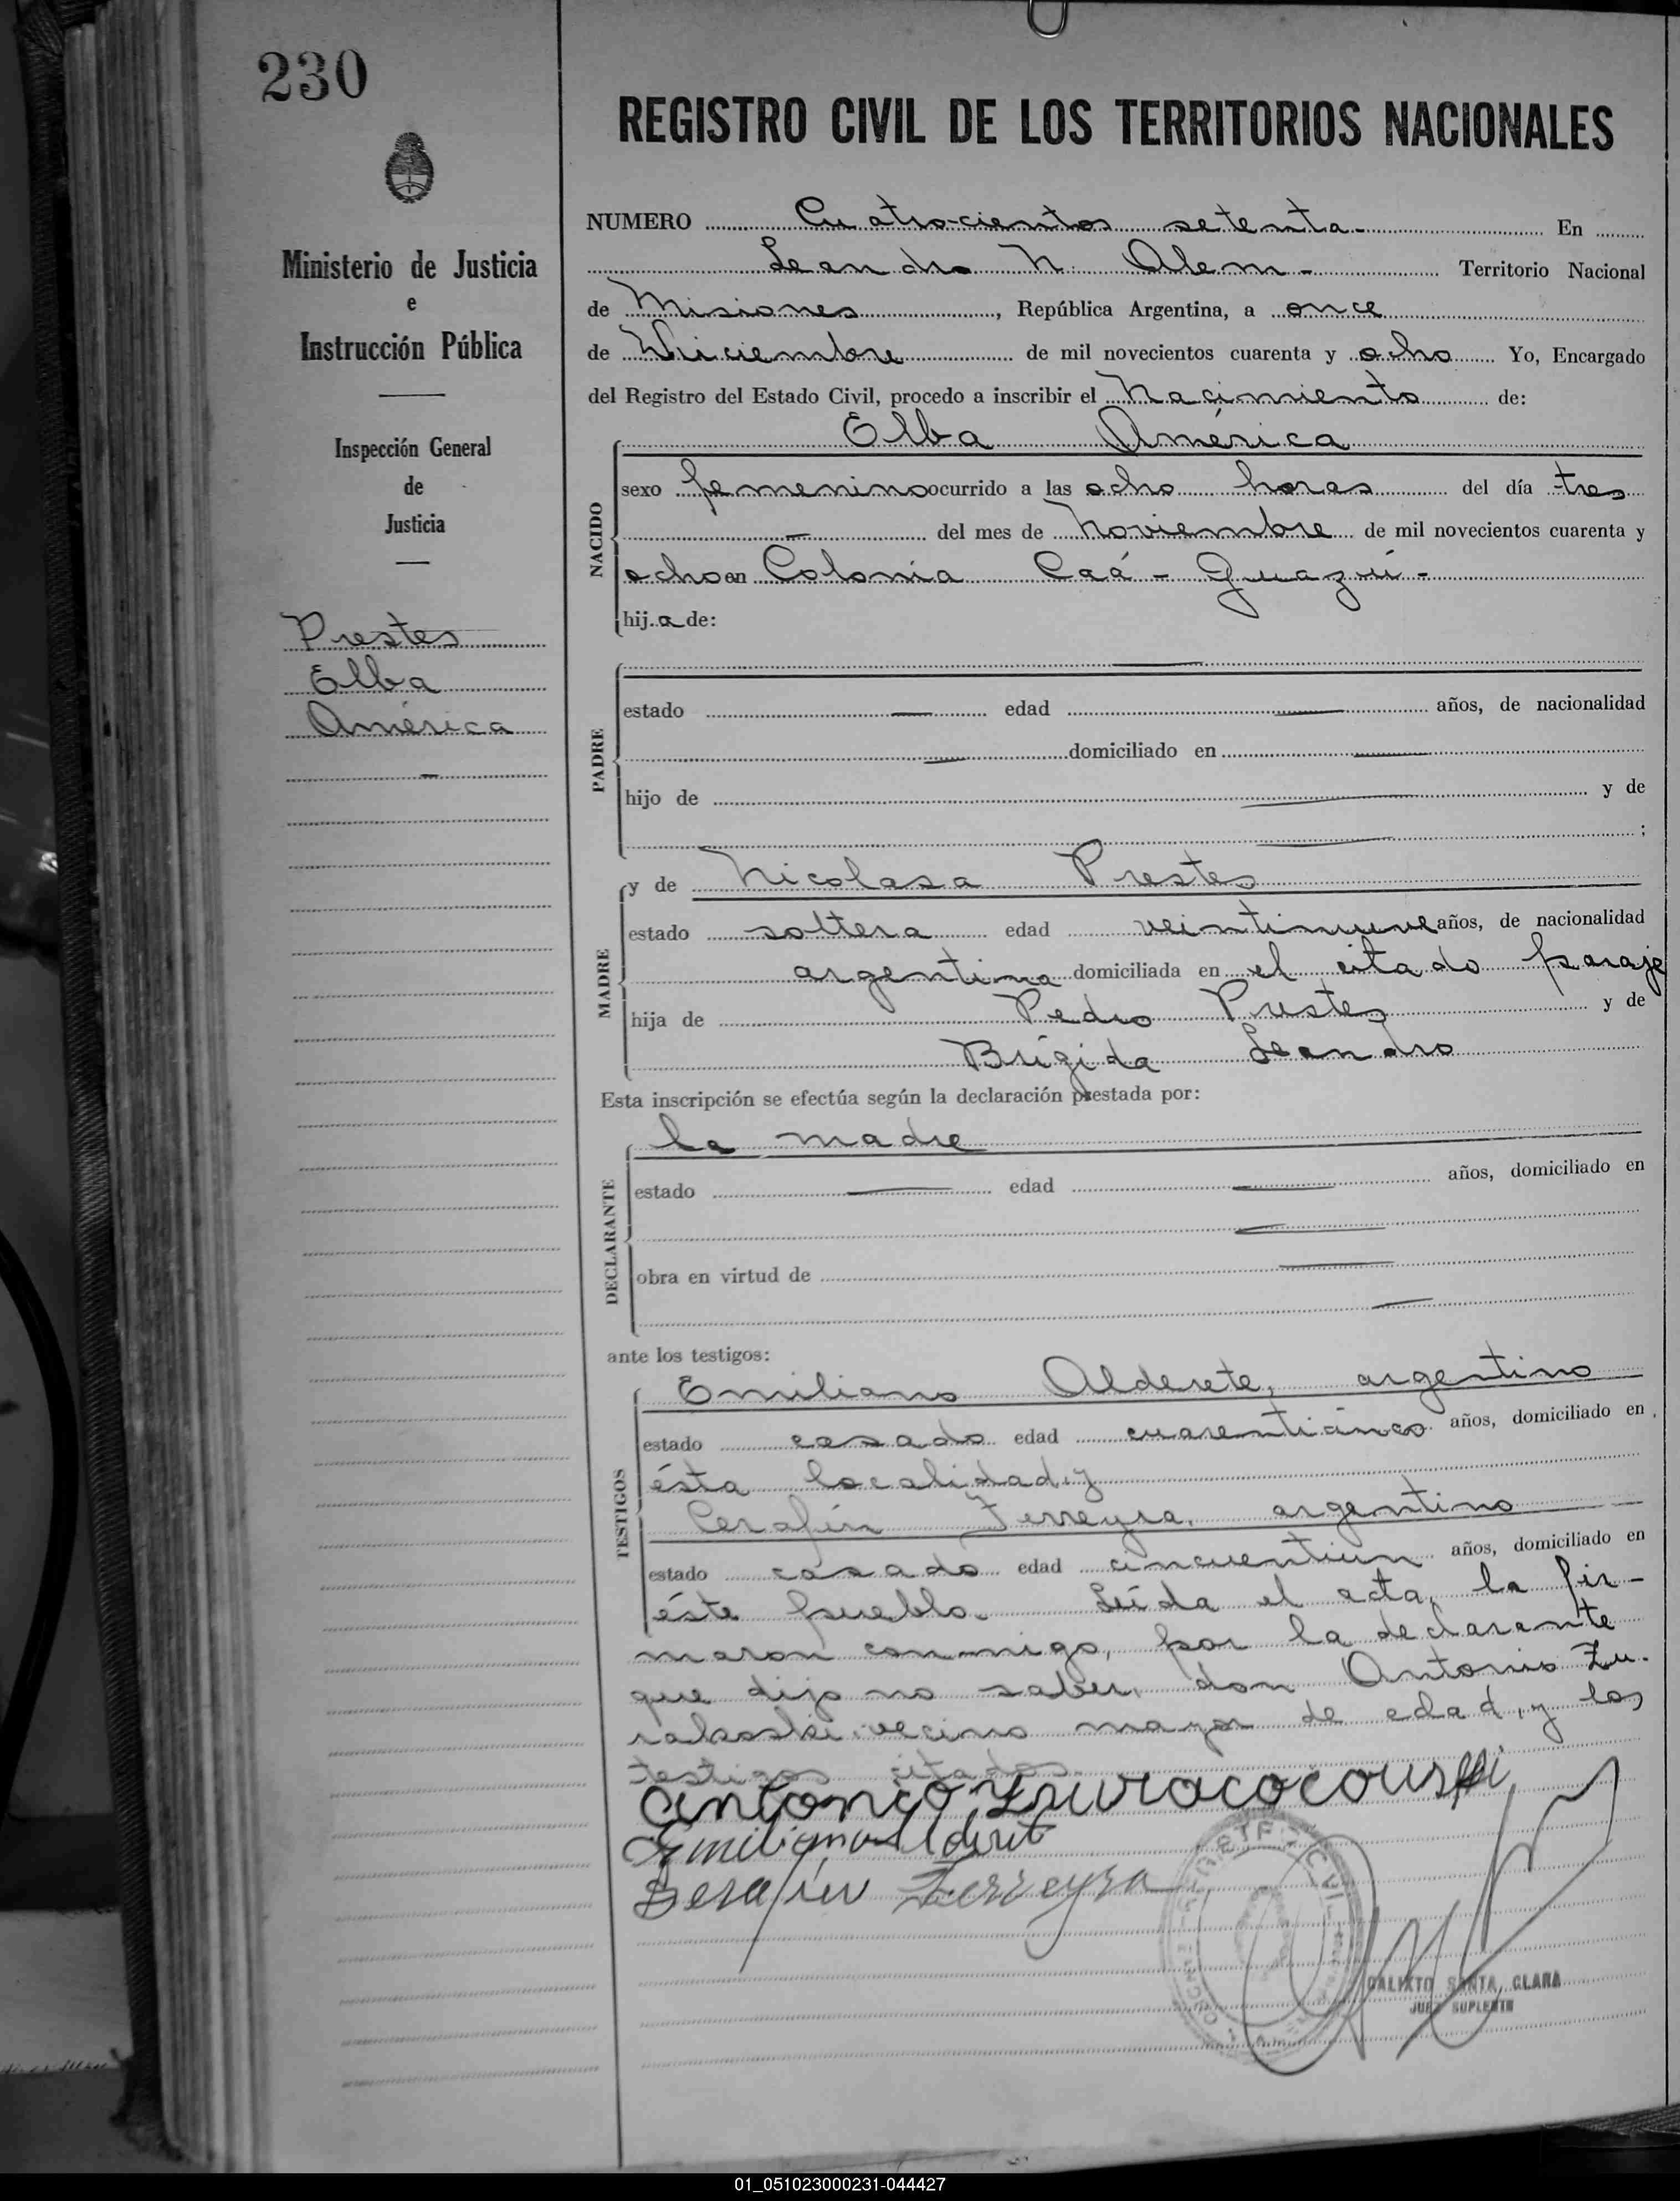 230
REGISTRO CIVIL DE LOS TERRITORIOS NACIONALES
Ministerio de Justicia
e
Instrucción Pública
Inspección General
de
Justicia
Prestes
Elba
América
NUMERO Cuatro-cientos setenta- En
Leandro N. Alem - Territorio Nacional
de Misiones, República Argentina, a once
de Diciembre de mil novecientos cuarenta y ocho Yo, Encargado
del Registro del Estado Civil, procedo a inscribir el Nacimiento de:
Elba América
NACIDO
sexo femenino ocurrido a las ocho horas del día tres
- del mes de Noviembre de mil novecientos cuarenta y
ocho en Colonia Caá - Guazú -
hija de:
PADRE
estado — edad — años, de nacionalidad
— domiciliado en —
hijo de — y de
— ;
MADRE
y de Nicolasa Prestes
estado soltera edad veintinueve años, de nacionalidad
argentina domiciliada en el citado paraje
hija de Pedro Prestes y de
Brígida Leandro
Esta inscripción se efectúa según la declaración prestada por:
DECLARANTE
la madre
estado — edad — años, domiciliado en
—
obra en virtud de —
—
ante los testigos:
TESTIGOS
Emiliano Alderete, argentino
estado casado edad cuarenticinco años, domiciliado en
ésta localidad, y
Cerafín Ferreyra, argentino
estado casado edad cincuentiun años, domiciliado en
éste pueblo. Leída el acta, la fir-
maron conmigo, por la declarante
que dijo no saber, don Antonio Zu-
rakoski vecino mayor de edad, y los
testigos citados.
Antonio Zuracocouski
Emiliano Alderet
Serafin Ferreyra
CALIXTO SANTA CLARA
JUEZ SUPLENTE
01_051023000231-044427